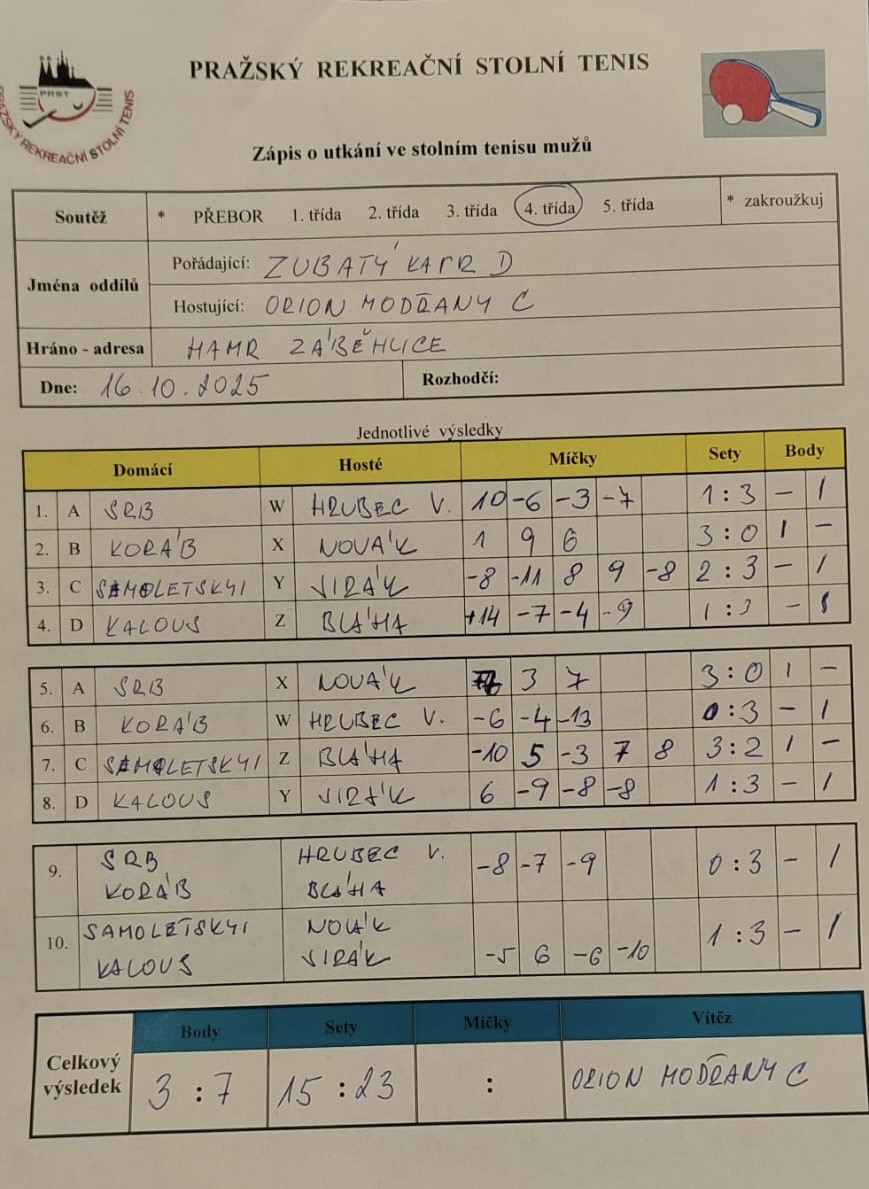 PRAŽSKÝ REKREAČNÍ STOLNÍ TENIS
PRST
PRAŽSKÝ REKREAČNÍ STOLNÍ TENIS
Zápis o utkání ve stolním tenisu mužů
Soutěž * PŘEBOR 1. třída 2. třída 3. třída 4. třída 5. třída * zakroužkuj
Jména oddílů
Pořádající: ZUBATÝ KAPR D
Hostující: ORION MODŘANY C
Hráno - adresa HAMR ZÁBĚHLICE
Dne: 16.10.2025 Rozhodčí:
Jednotlivé výsledky
Domácí Hosté Míčky Sety Body
1. A SRB W HRUBEC V. 10 -6 -3 -7 1 : 3 - 1
2. B KORÁB X NOVÁK 1 9 6 3 : 0 1 -
3. C SAMOLETSKYI Y JIRÁK -8 -11 8 9 -8 2 : 3 - 1
4. D KALOUS Z BLÁHA +14 -7 -4 -9 1 : 3 - 1
5. A SRB X NOVÁK 3 7 3 : 0 1 -
6. B KORÁB W HRUBEC V. -6 -4 -13 0 : 3 - 1
7. C SAMOLETSKYI Z BLÁHA -10 5 -3 7 8 3 : 2 1 -
8. D KALOUS Y JIRÁK 6 -9 -8 -8 1 : 3 - 1
9. SRB HRUBEC V. -8 -7 -9 0 : 3 - 1
KORÁB BLÁHA
10. SAMOLETSKYI NOVÁK 1 : 3 - 1
KALOUS JIRÁK -5 6 -6 -10
Body Sety Míčky Vítěz
Celkový výsledek 3 : 7 15 : 23 : ORION MODŘANY C